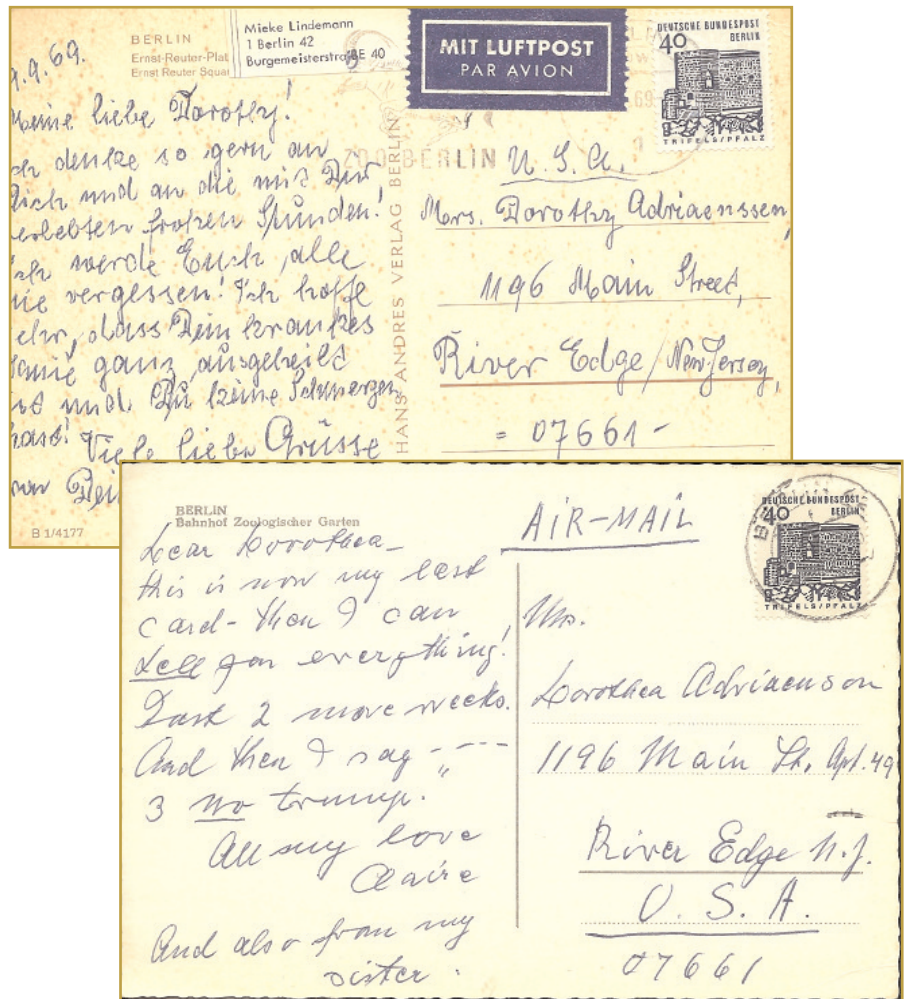 BERLIN
Ernst-Reuter-Plat
Ernst Reuter Squar
Mieke Lindemann
1 Berlin 42
Burgemeisterstraße 40
MIT LUFTPOST
PAR AVION
DEUTSCHE BUNDESPOST
BERLIN
40
TRIFELS/PFALZ
9.9.69.
Meine liebe Dorothy!
ch denke so gern an
Dich und an die mit Dir
verlebten frohen Stunden!
Ich werde Euch alle
nie vergessen! Ich hoffe
sehr, dass Dein krankes
Knie ganz ausgeheilt
ist und Du keine Schmerzen
hast! Viele liebe Grüsse
von Dei
B 1/4177
HANS ANDRES VERLAG BERLIN
ZOO BERLIN
U.S.A.
Mrs. Dorothy Adriaenssen,
1196 Main Street,
River Edge/New Jersey,
= 07661 -
BERLIN
Bahnhof Zoologischer Garten
Dear Dorothea -
this is now my last
card - then I can
tell you everything!
Just 2 more weeks.
And then I say - „ ---
3 no trump.
All my love
Claire
And also from my
sister.
AIR-MAIL
DEUTSCHE BUNDESPOST
BERLIN
40
TRIFELS/PFALZ
Mrs.
Dorothea Adriaenson
1196 Main St. Apt. 49
River Edge N.J.
U. S. A.
07661